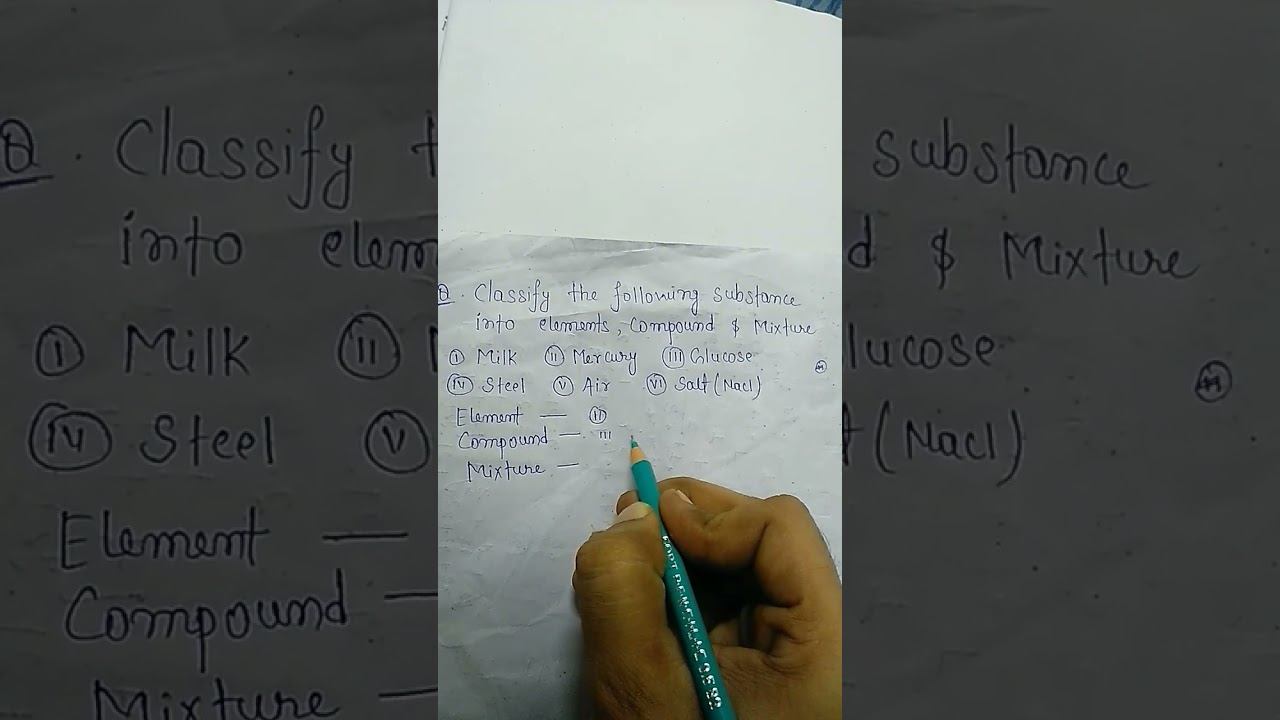 Q. Classify the following substance
into elements, Compound & Mixture
(I) Milk (II) Mercury (III) Glucose
(IV) Steel (V) Air (VI) Salt (Nacl)
Element — (II)
Compound — III
Mixture —